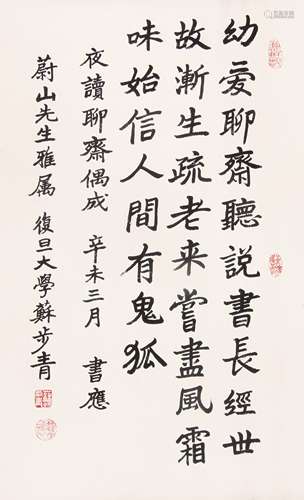 幼爱聊齋聽説書長經世
故漸生疏老来嘗盡風霜
味始信人間有鬼狐
夜讀聊齋偶成 辛未三月 書應
蔚山先生雅属 復旦大學蘇步青